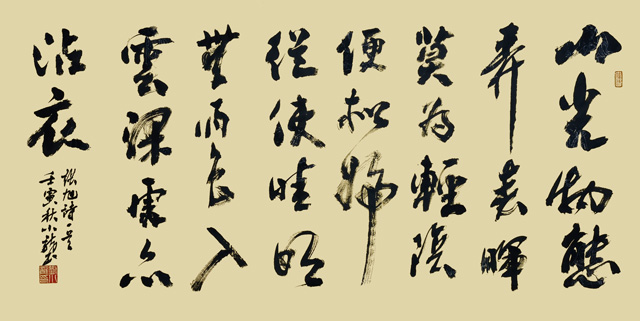 山光物態
弄春暉
莫為輕陰
便拟歸
縱使晴明
無雨色入
雲深處亦
沾衣
張旭詩一首
壬寅秋小龍書